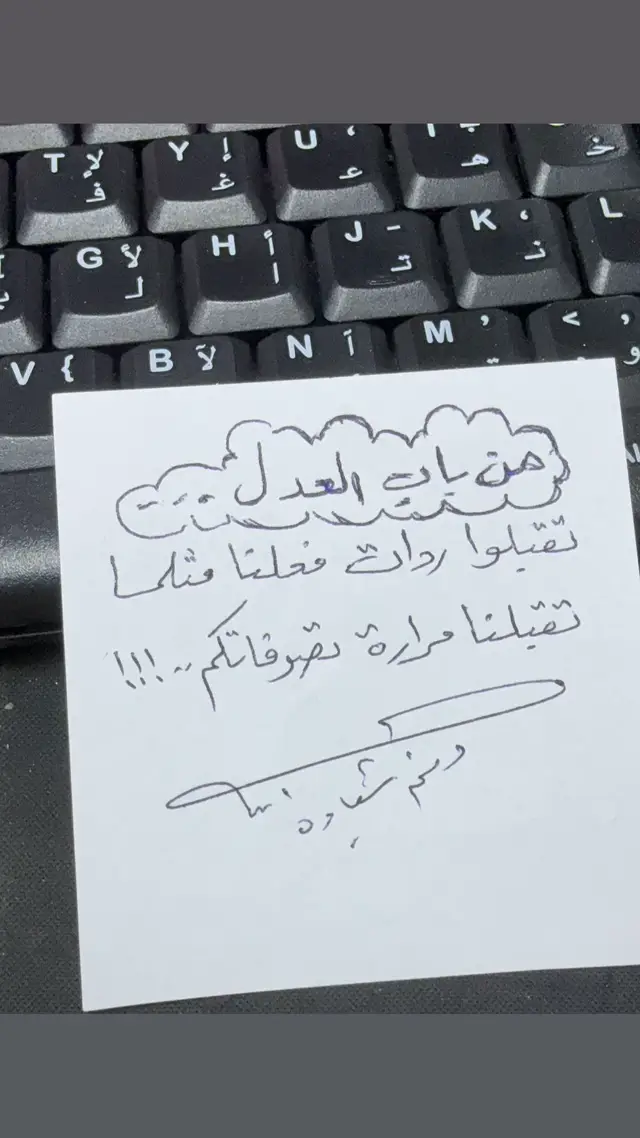 T لإ ف
Y إ غ
U ‘ ع
ه
خ
G لأ ل
H أ ا
J - ت
K ، ن
L
V {
B لآ
N آ
M ’
< ,
و
من باب العدل ...
تقبلوا ردات فعلنا مثلما
تقبلنا مرارة تصرفاتكم .. !!!